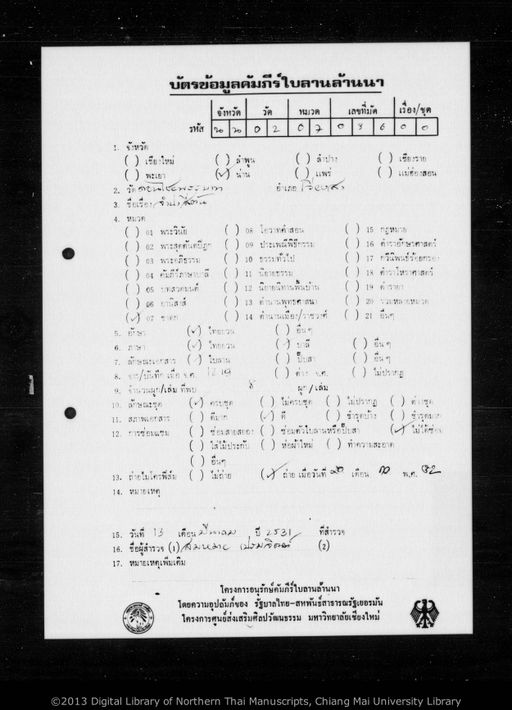 บัตรข้อมูลคัมภีร์ใบลานล้านนา
จังหวัด วัด หมวด เลขที่มัด เรื่อง/ชุด
รหัส ๒ ๒ ๐ 2 ๐ ๗ ๐ ๐ ๐
1. จังหวัด
( ) เชียงใหม่ ( ) ลำพูน ( ) ลำปาง ( ) เชียงราย
( ) พะเยา (✓) น่าน ( ) แพร่ ( ) แม่ฮ่องสอน
2. วัด อำเภอ
3. ชื่อเรื่อง
4. หมวด
( ) 01 พระวินัย ( ) 08 โอวาทคำสอน ( ) 15 กฎหมาย
( ) 02 พระสุตตันตปิฎก ( ) 09 ประเพณีพิธีกรรม ( ) 16 ตำราอักษรศาสตร์
( ) 03 พระอภิธรรม ( ) 10 ธรรมทั่วไป ( ) 17 กวีนิพนธ์ร้อยกรอง
( ) 04 คัมภีร์ภาษาบาลี ( ) 11 นิยายธรรม ( ) 18 ตำราโหราศาสตร์
( ) 05 บทสวดมนต์ ( ) 12 นิยายนิทานพื้นบ้าน ( ) 19 ตำรายา
( ) 06 อานิสงส์ ( ) 13 ตำนานพุทธศาสนา ( ) 20 รวมหลายหมวด
(✓) 07 ชาดก ( ) 14 ตำนานเมือง/ราชวงศ์ ( ) 21 อื่นๆ
5. อักษร (✓) ไทยยวน ( ) อื่นๆ
6. ภาษา (✓) ไทยยวน (✓) บาลี ( ) อื่นๆ
7. ลักษณะเอกสาร (✓) ใบลาน ( ) ปั๊บสา ( ) อื่นๆ
8. จาร/บันทึก เมื่อ จ.ศ. ( ) ไม่ปรากฏ
9. จำนวนผูก/เล่ม ที่พบ 8 ผูก/เล่ม
10. ลักษณะชุด (✓) ครบชุด ( ) ไม่ครบชุด ( ) ไม่ปรากฏ ( ) ต่างชุด
11. สภาพเอกสาร ( ) ดีมาก (✓) ดี ( ) ชำรุดบ้าง ( ) ชำรุดมาก
12. การซ่อมแซม ( ) ซ่อมสายสยอง ( ) ซ่อมตัวใบลานหรือปั๊บสา (✓) ไม่ได้ซ่อม
( ) ใส่ไม้ประกับ ( ) ห่อผ้าใหม่ ( ) ทำความสะอาด
( ) อื่นๆ
13. ถ่ายไมโครฟิล์ม ( ) ไม่ถ่าย (✓) ถ่าย เมื่อวันที่ เดือน พ.ศ.
14. หมายเหตุ
15. วันที่ 13 เดือน มีนาคม ปี 2531 ที่สำรวจ
16. ชื่อผู้สำรวจ (1) สมหมาย (2)
17. หมายเหตุเพิ่มเติม
โครงการอนุรักษ์คัมภีร์ใบลานล้านนา
โดยความอุปถัมภ์ของ รัฐบาลไทย-สหพันธ์สาธารณรัฐเยอรมัน
โครงการศูนย์ส่งเสริมศิลปวัฒนธรรม มหาวิทยาลัยเชียงใหม่
©2013 Digital Library of Northern Thai Manuscripts, Chiang Mai University Library